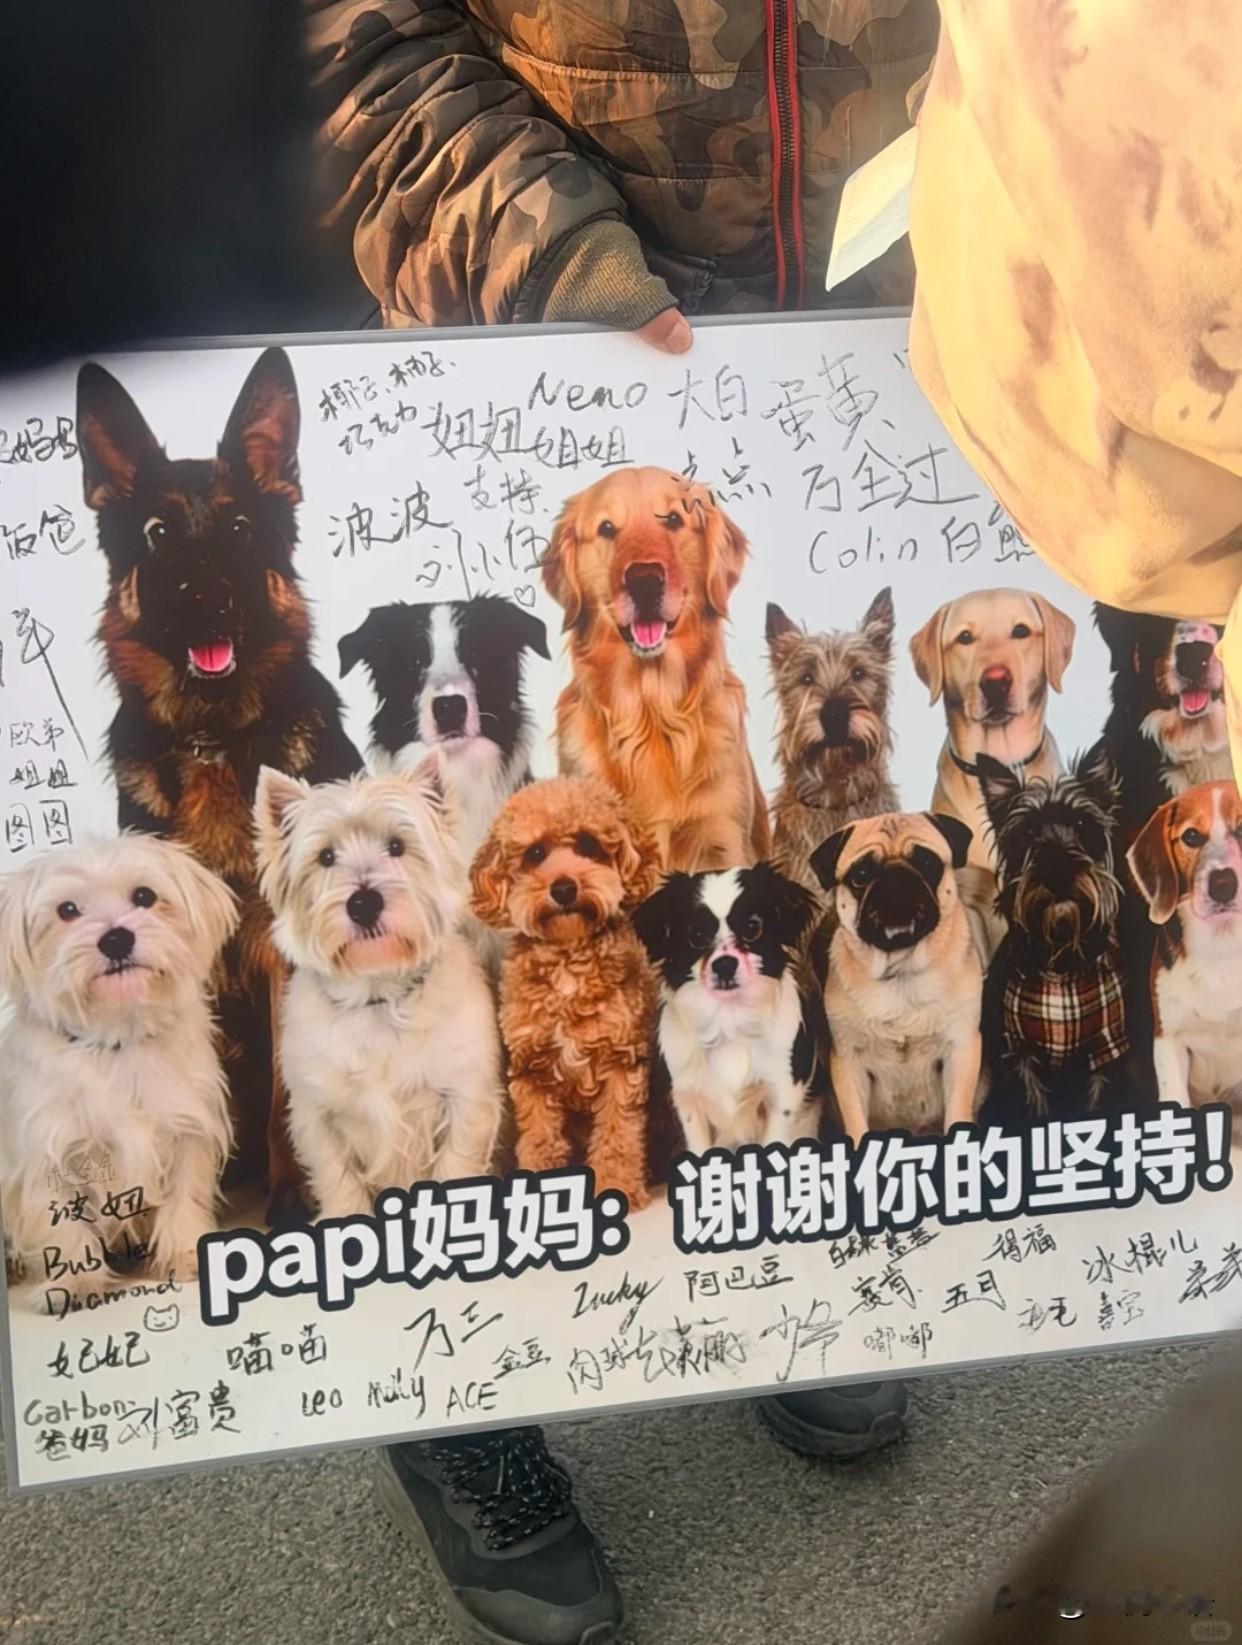 椰子、柚子、
巧克力
妞妞
Neno
姐姐
大白
蛋黄
点点
万全过
波波
支持
刘小伍
Colin 白
饭爸
欧弟
姐姐
图图
papi妈妈：谢谢你的坚持！
波妞
Bubble
Diamond
妃妃
喵喵
万三
金豆
Lucky
阿巴豆
得福
五月
冰棍儿
毛毛
喜宝
嘟嘟
肉球
Carbon
爸妈
刘富贵
Leo
Molly
ACE